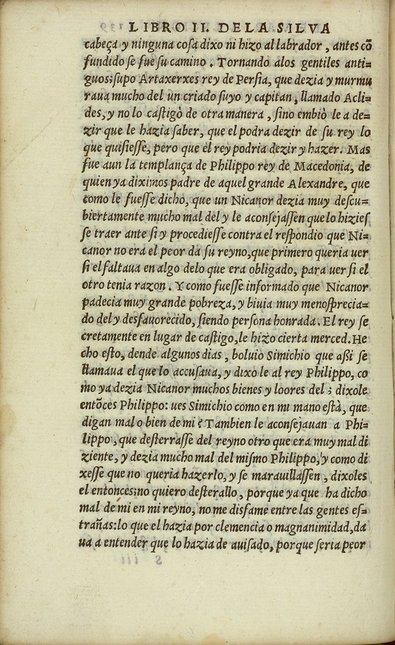 LIBRO II. DE LA SILVA
cabeça y ninguna cosa dixo ni hizo al labrador, antes cõ
fundido se fue su camino. Tornando alos gentiles anti-
guos: supo Artaxerxes rey de Persia, que dezia y murmu
raua mucho del un criado suyo y capitan, llamado Acli-
des, y no lo castigò de otra manera, sino embiò le a de-
zir que le hazia saber, que el podra dezir de su rey lo
que quisiesse, pero que el rey podria dezir y hazer. Mas
fue aun la templança de Philippo rey de Macedonia, de
quien ya diximos padre de aquel grande Alexandre, que
como le fuesse dicho, que un Nicanor dezia muy descu-
biertamente mucho mal del y le aconsejassen que lo hizies
se traer ante si y procediesse contra el respondio que Ni-
canor no era el peor da su reyno, que primero queria uer
si el faltaua en algo delo que era obligado, para uer si el
otro tenia razon. Y como fuesse informado que Nicanor
padecia muy grande pobreza, y biuia muy menosprecia-
do del y desfauorecido, siendo persona honrada. El rey se
cretamente en lugar de castigo, le hizo cierta merced. He
cho esto, dende algunos dias, boluio Simichio que aßi se
llamaua el que lo accusaua, y dixo le al rey Philippo, co
mo ya dezia Nicanor muchos bienes y loores del; dixole
entõces Philippo: ues Simichio como en mi mano està, que
digan mal o bien de mi? Tambien le aconsejauan a Phi-
lippo, que desterrasse del reyno otro que era muy mal di
ziente, y dezia mucho mal del mismo Philippo, y como di
xesse que no queria hazerlo, y se marauillassen, dixoles
el entonces: no quiero desterallo, porque ya que ha dicho
mal de mi en mi reyno, no me disfame entre las gentes es-
trañas: lo que el hazia por clemencia o magnanimidad, da
ua a entender que lo hazia de auisado, porque seria peor